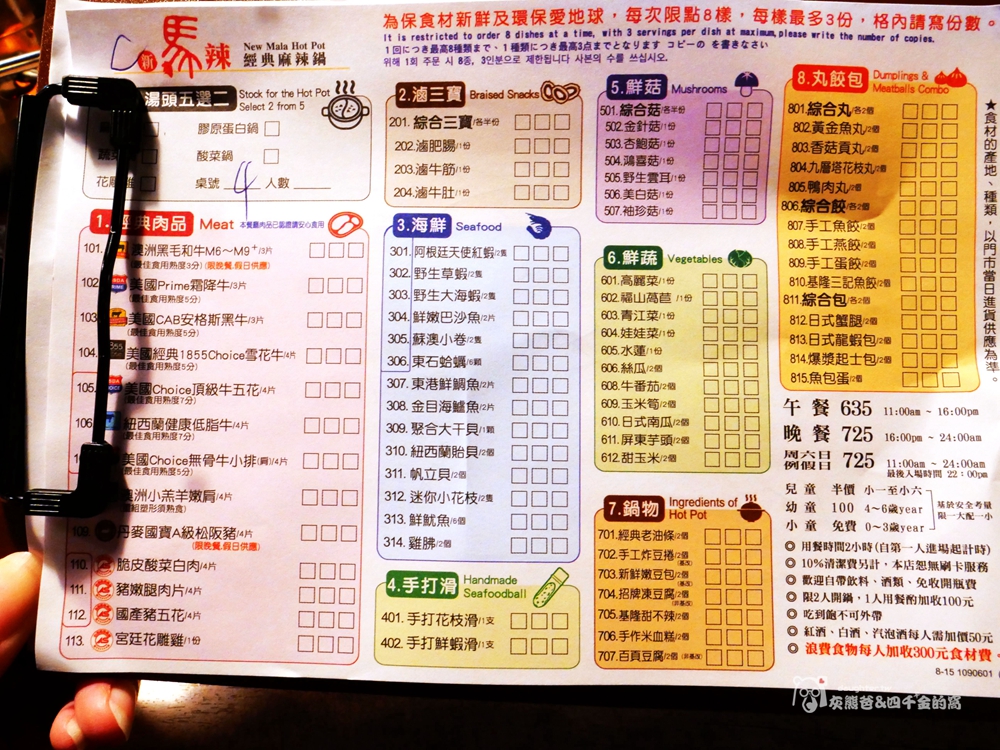 新 馬辣
New Mala Hot Pot
經典麻辣鍋
為保食材新鮮及環保愛地球，每次限點8樣，每樣最多3份，格內請寫份數。
It is restricted to order 8 dishes at a time, with 3 servings per dish at maximum, please write the number of copies.
1回につき最高8種類まで、1種類につき最高3点までとなります コピーの を書きなさい
위해 1회 주문 시 8종, 3인분으로 제한됩니다 사본의 수를 쓰십시오.
湯頭五選二
Stock for the Hot Pot
Select 2 from 5
膠原蛋白鍋
酸菜鍋
花雕雞
桌號 4 人數
1.經典肉品 Meat 本餐廳肉品已認證請安心食用
101. 澳洲黑毛和牛M6～M9+/3片
(最佳食用熟度3分) (限晚餐.假日供應)
102. 美國Prime霜降牛/3片
(最佳食用熟度5分)
103. 美國CAB安格斯黑牛/3片
(最佳食用熟度5分)
104. 美國經典1855Choice雪花牛/4片
(最佳食用熟度5分)
105. 美國Choice頂級牛五花/4片
(最佳食用熟度7分)
106. 紐西蘭健康低脂牛/4片
(最佳食用熟度7分)
美國Choice無骨牛小排(肩)/4片
(最佳食用熟度5分)
澳洲小羔羊嫩肩/4片
109. 丹麥國寶A級松阪豬/4片
(限晚餐.假日供應)
110. 脆皮酸菜白肉/4片
111. 豬嫩腿肉片/4片
112. 國產豬五花/4片
113. 宮廷花雕雞/1份
2.滷三寶 Braised Snacks
201. 綜合三寶/各半份
202. 滷肥腸/1份
203. 滷牛筋/1份
204. 滷牛肚/1份
3.海鮮 Seafood
301. 阿根廷天使紅蝦/2隻
302. 野生草蝦/2隻
303. 野生大海蝦/2隻
304. 鮮嫩巴沙魚/2片
305. 蘇澳小卷/2隻
306. 東石蛤蠣/6顆
307. 東港鮮鯛魚/2片
308. 金目海鱸魚/2片
309. 聚合大干貝/1顆
310. 紐西蘭胎貝/2個
311. 帆立貝/2個
312. 迷你小花枝/2隻
313. 鮮魷魚/6個
314. 雞胇/2個
4.手打滑 Handmade
Seafoodball
401. 手打花枝滑/1支
402. 手打鮮蝦滑/1支
5.鮮菇 Mushrooms
501.綜合菇/各半份
502.金針菇/1份
503.杏鮑菇/1份
504.鴻喜菇/1份
505.野生雲耳/1份
506.美白菇/1份
507.袖珍菇/1份
6.鮮蔬 Vegetables
601.高麗菜/1份
602.福山萵苣/1份
603.青江菜/1份
604.娃娃菜/1份
605.水蓮/1份
606.絲瓜/2個
608.牛番茄/2個
609.玉米筍/2個
610.日式南瓜/2個
611.屏東芋頭/2個
612.甜玉米/2個
7.鍋物 Ingredients of
Hot Pot
701.經典老油條/2個
702.手工炸豆捲/2個
703.新鮮嫩豆包/2個
704.招牌凍豆腐/2個
705.基隆甜不辣/2個
706.手作米血糕/2個
707.百頁豆腐/2個
8.丸餃包 Dumplings &
Meatballs Combo
801.綜合丸/各2個
802.黃金魚丸/2個
803.香菇貢丸/2個
804.九層塔花枝丸/2個
805.鴨肉丸/2個
806.綜合餃/各2個
807.手工魚餃/2個
808.手工燕餃/2個
809.手工蛋餃/2個
810.基隆三記魚餃/2個
811.綜合包/各2個
812.日式蟹腿/2個
813.日式龍蝦包/2個
814.爆漿起士包/2個
815.魚包蛋/2個
★食材的產地、種類，以門市當日進貨供應為準。
午餐 635 11:00am ~ 16:00pm
晚餐 725 16:00pm ~ 24:00am
周六日
例假日 725 11:00am ~ 24:00am
最後入場時間 22：00pm
兒童 半價 小一至小六
幼童 100 4~6歲year
小童 免費 0~3歲year
基於安全考量
限一大配一小
◎ 用餐時間2小時(自第一人進場起計時)
◎ 10%清潔費另計，本店恕無刷卡服務
◎ 歡迎自帶飲料、酒類、免收開瓶費
◎ 限2人開鍋，1人用餐酌加收100元
◎ 吃到飽不可外帶
◎ 紅酒、白酒、汽泡酒每人需加價50元
◎ 浪費食物每人加收300元食材費。
8-15 1090601
灰熊爸&四千金的窩